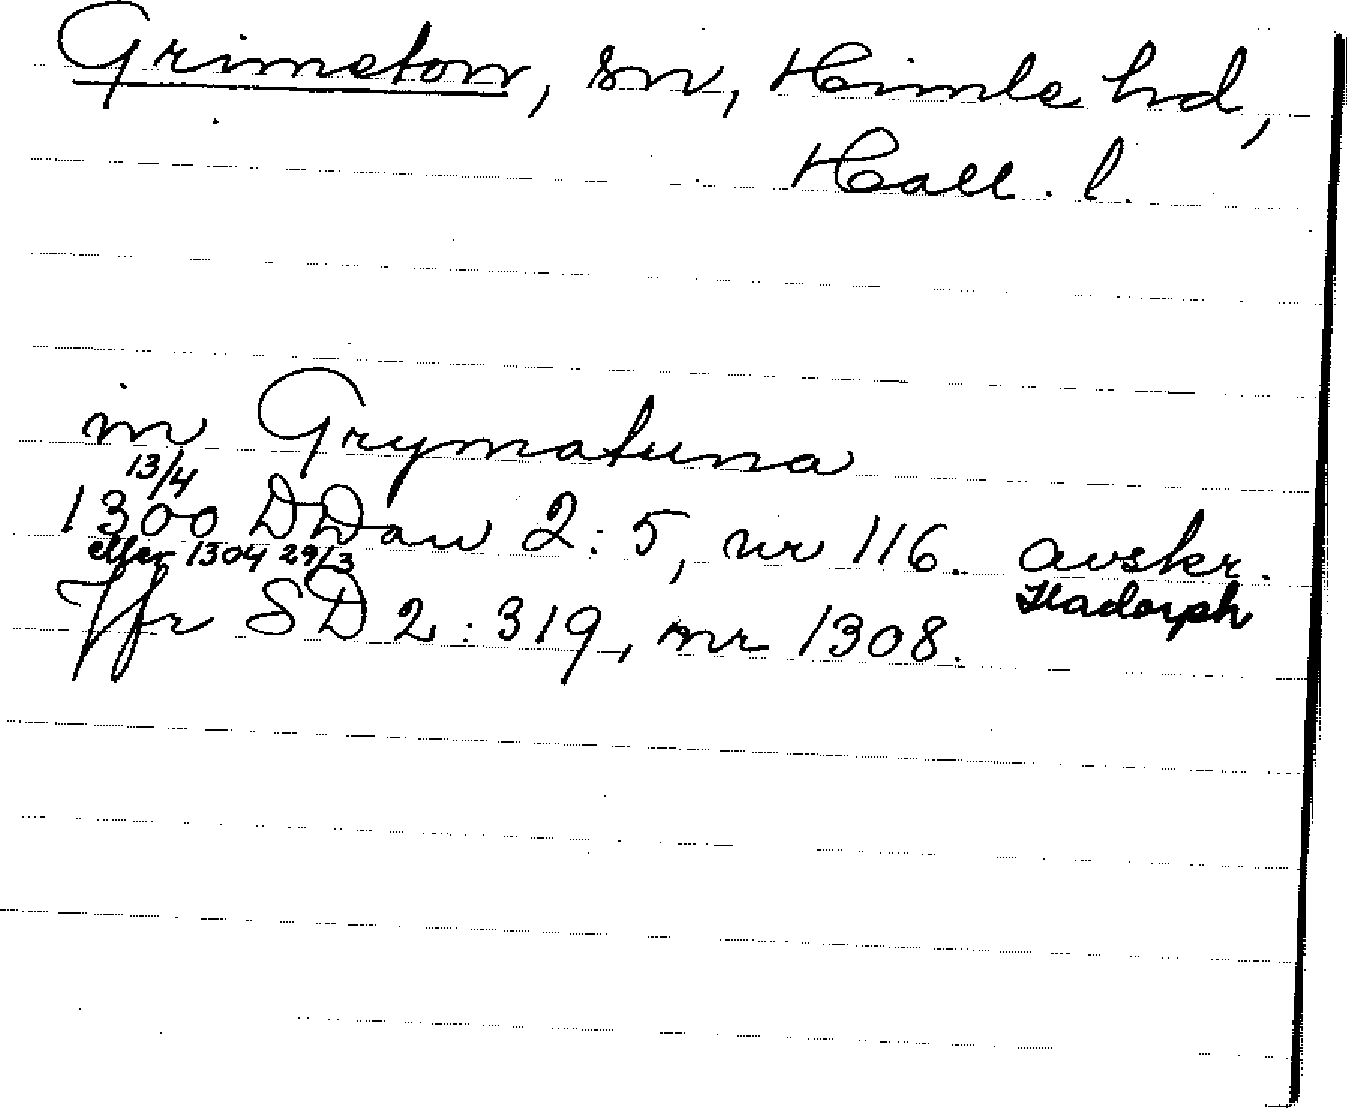 Grimeton, sn, Himle hd,
Hall. l.
in Grymatuna
13/4
1300 DDan 2:5, nr 116. avskr.
eller 1304 29/3 Hadorph
Jfr SD 2:319, nr 1308.